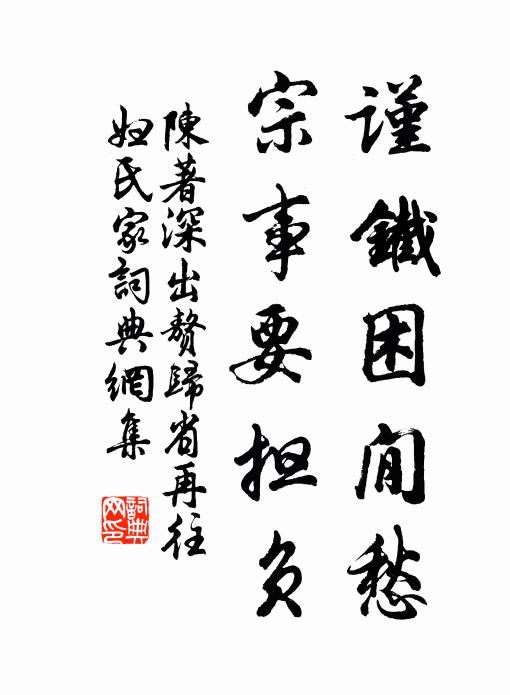 謹鐵困閒愁
宗事要担負
陳著深出贅歸省再往
妞氏家詞典網集
詞典網印